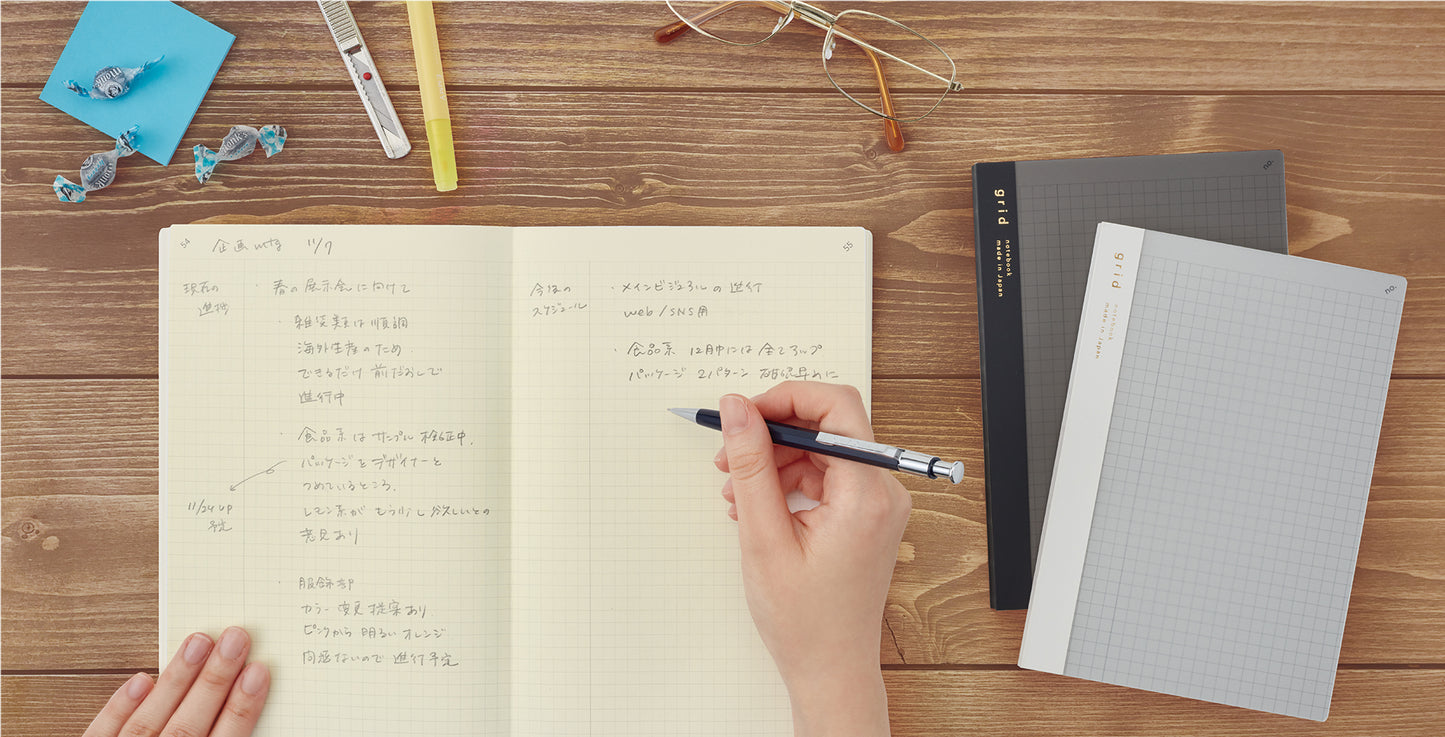 54
企画mtg 11/7
現在の
進捗
・春の展示会に向けて
・雑貨類は順調
海外生産のため
できるだけ前だおしで
進行中
・食品系はサンプル校正中.
パッケージをデザイナーと
つめているところ.
レモン系がもう少し欲しいとの
意見あり
11/24 UP
予定
・服飾部
カラー変更提案あり
ピンクから明るいオレンジ
問題ないので進行予定
55
今後の
スケジュール
・メインビジュアルの進行
web/SNS用
・食品系 12月中には全てアップ
パッケージ 2パターン 早めに
grid
notebook
made in Japan
no.
grid
notebook
made in Japan
no.